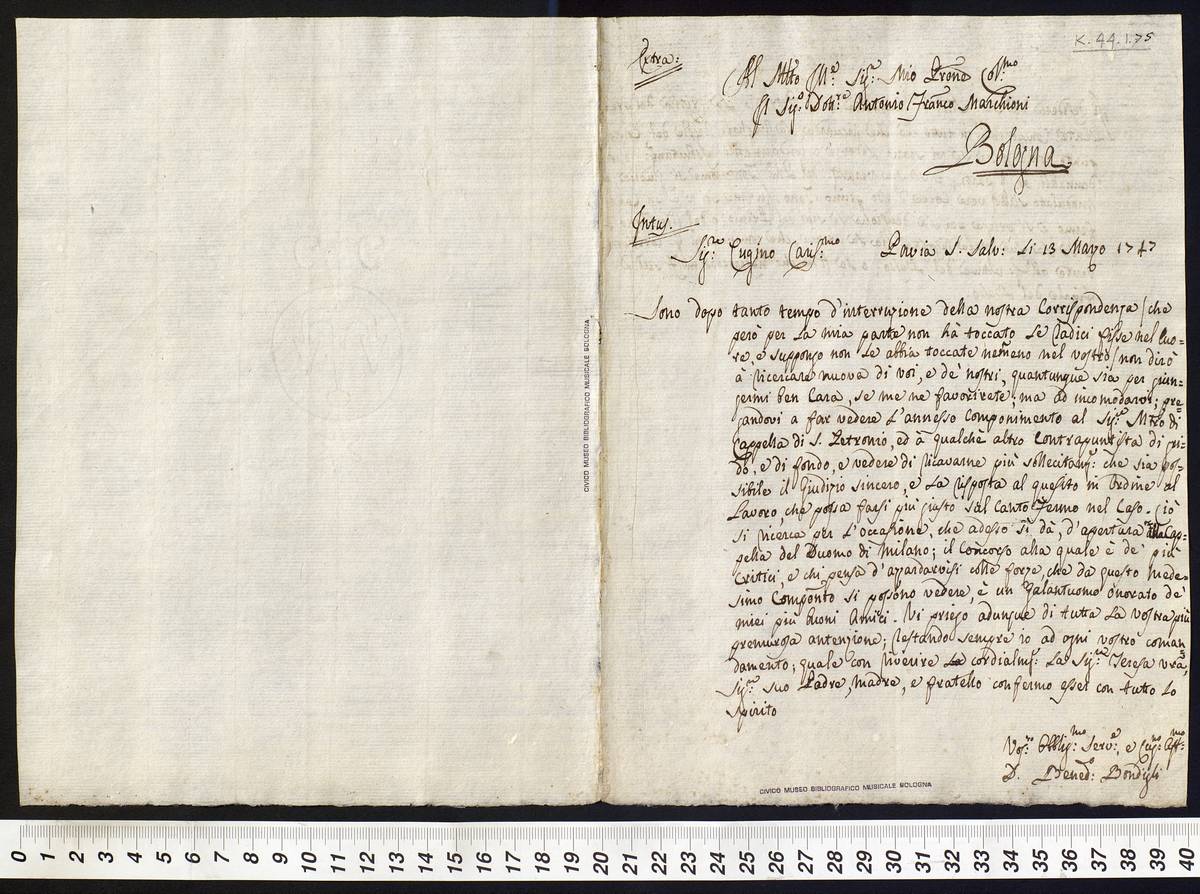 K.44.1.75
Extra:
Al Mlto Ill.e Sig.r Mio Prone Col.mo
Il Sig.r Dott.re Antonio Franco Marchioni
Bologna
Intus.
Sig.re Cugino Cariss.mo Pavia S. Salv: Li 13 Marzo 1747
Sono dopo tanto tempo d'interruzione della nostra Corrispondenza (che
però per la mia parte non hà toccato le Radici fisse nel Cuo=
re, e suppongo non le abbia toccate nem̄eno nel vostro) non dirò
à ricercare nuova di voi, e de' nostri, quantunque sia per giun=
germi ben Cara, se me ne favorirete; ma ad incomodarvi; pre=
gandovi a far vedere l'annesso Componimento al Sig.r Mtro di
Cappella di S. Petronio, ed à qualche altro Contrapuntista di gri=
do, e di fondo, e vedere di ricavarne più sollecitam: che sia pos=
sibile il Giudizio sincero, e la risposta al quesito in Ordine al
Lavoro, che possa farsi più giusto sul Canto Fermo nel Caso. Ciò
si ricerca per l'occasione, che adesso si dà, d'apertura alla Cap=
pella del Duomo di Milano; il Concorso alla quale è de' più
Critici, e chi pensa d'azardarvisi colle forze, che da questo mede=
simo Componto si possono vedere, è un Galantuomo onorato de'
miei più buoni Amici. Vi priego adunque di tutta la vostra più
premurosa attenzione; restando sempre io ad ogni vostro coman=
damento; quale con riverire La cordialm: La Sig.ra Teresa vra,
Sig.r suo Padre, madre, e fratello confermo esser con tutto lo
spirito
Vos.ro Obblig.mo Serv.e, e Cug.no Aff.mo
D. Bened.o Bondigli
CIVICO MUSEO BIBLIOGRAFICO MUSICALE BOLOGNA
CIVICO MUSEO BIBLIOGRAFICO MUSICALE BOLOGNA
0 1 2 3 4 5 6 7 8 9 10 11 12 13 14 15 16 17 18 19 20 21 22 23 24 25 26 27 28 29 30 31 32 33 34 35 36 37 38 39 40